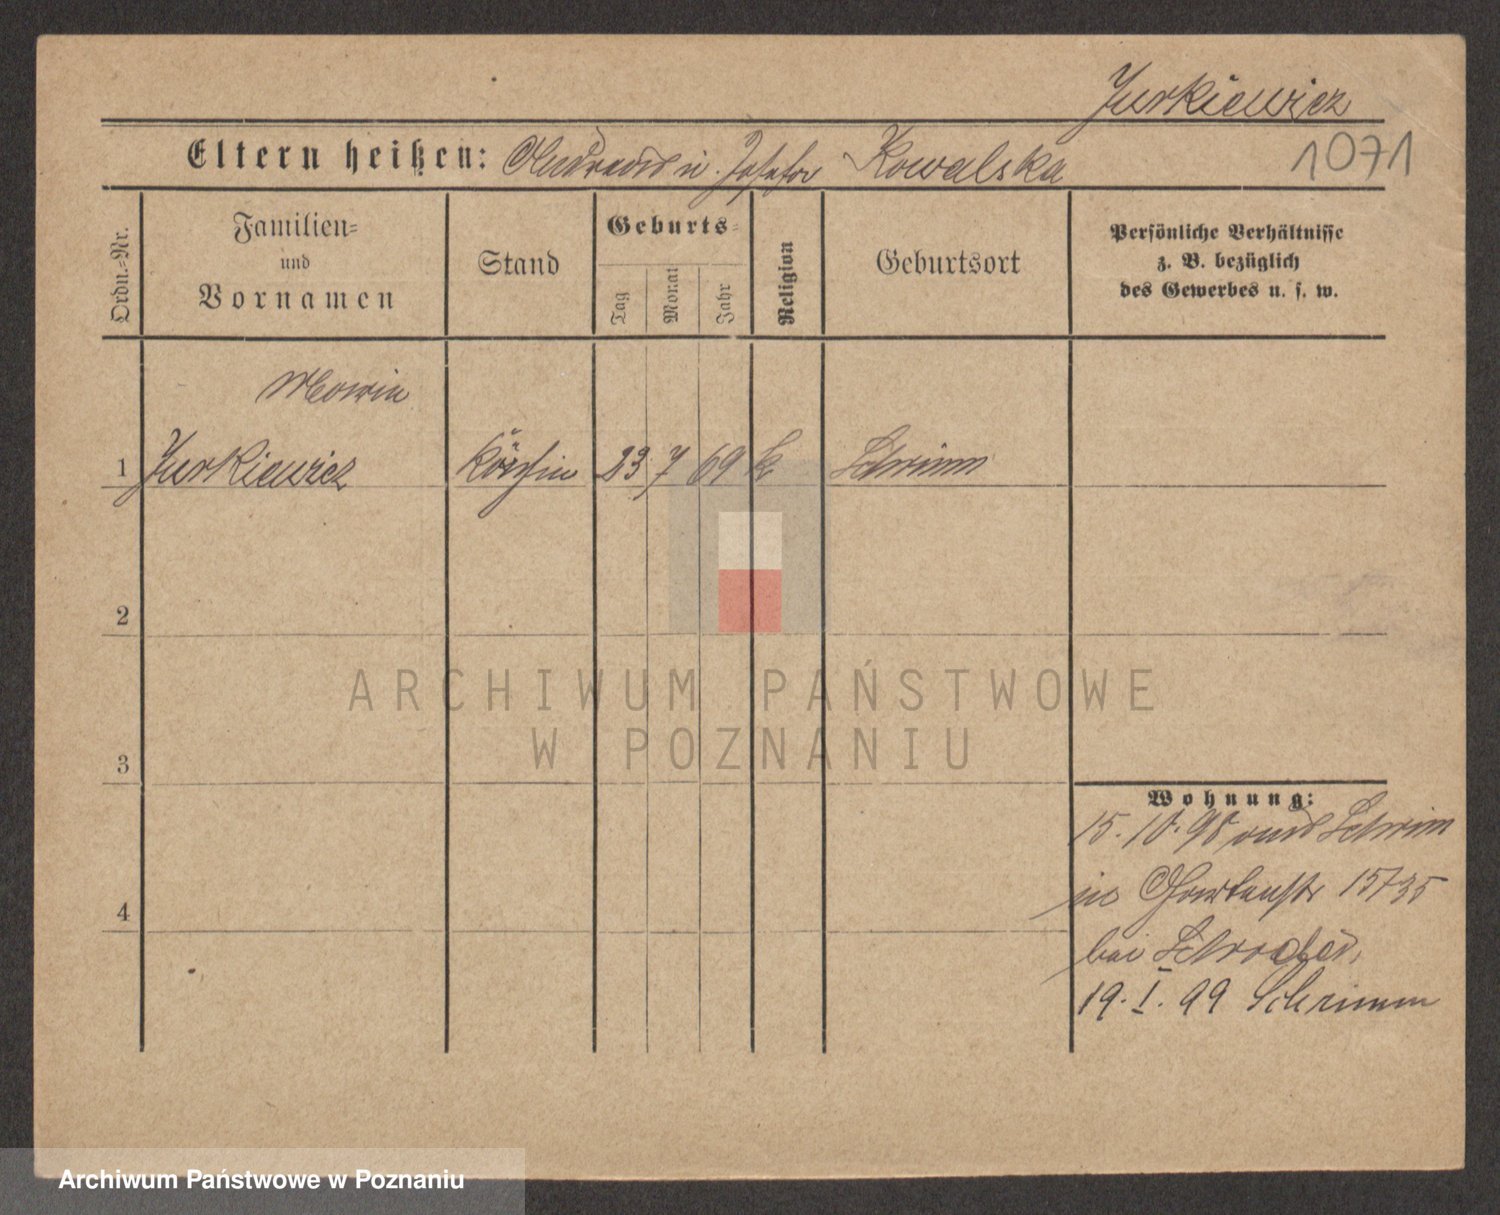 Jurkiewicz
1071
Eltern heißen: Andreas u. Josefa Kowalska
Ordn.-Nr.
Familien-
und
Vornamen
Stand
Geburts-
Tag
Monat
Jahr
Religion
Geburtsort
Persönliche Verhältnisse
z. B. bezüglich
des Gewerbes u. s. w.
Marie
1 Jurkiewicz Köchin 23 7 69 k. Schrimm
2
ARCHIWUM PAŃSTWOWE
W POZNANIU
3
Wohnung:
15.10.98 aus Schrimm
in Gartenstr 15
bei Schroder,
4
19. I. 99 Schrimm
Archiwum Państwowe w Poznaniu